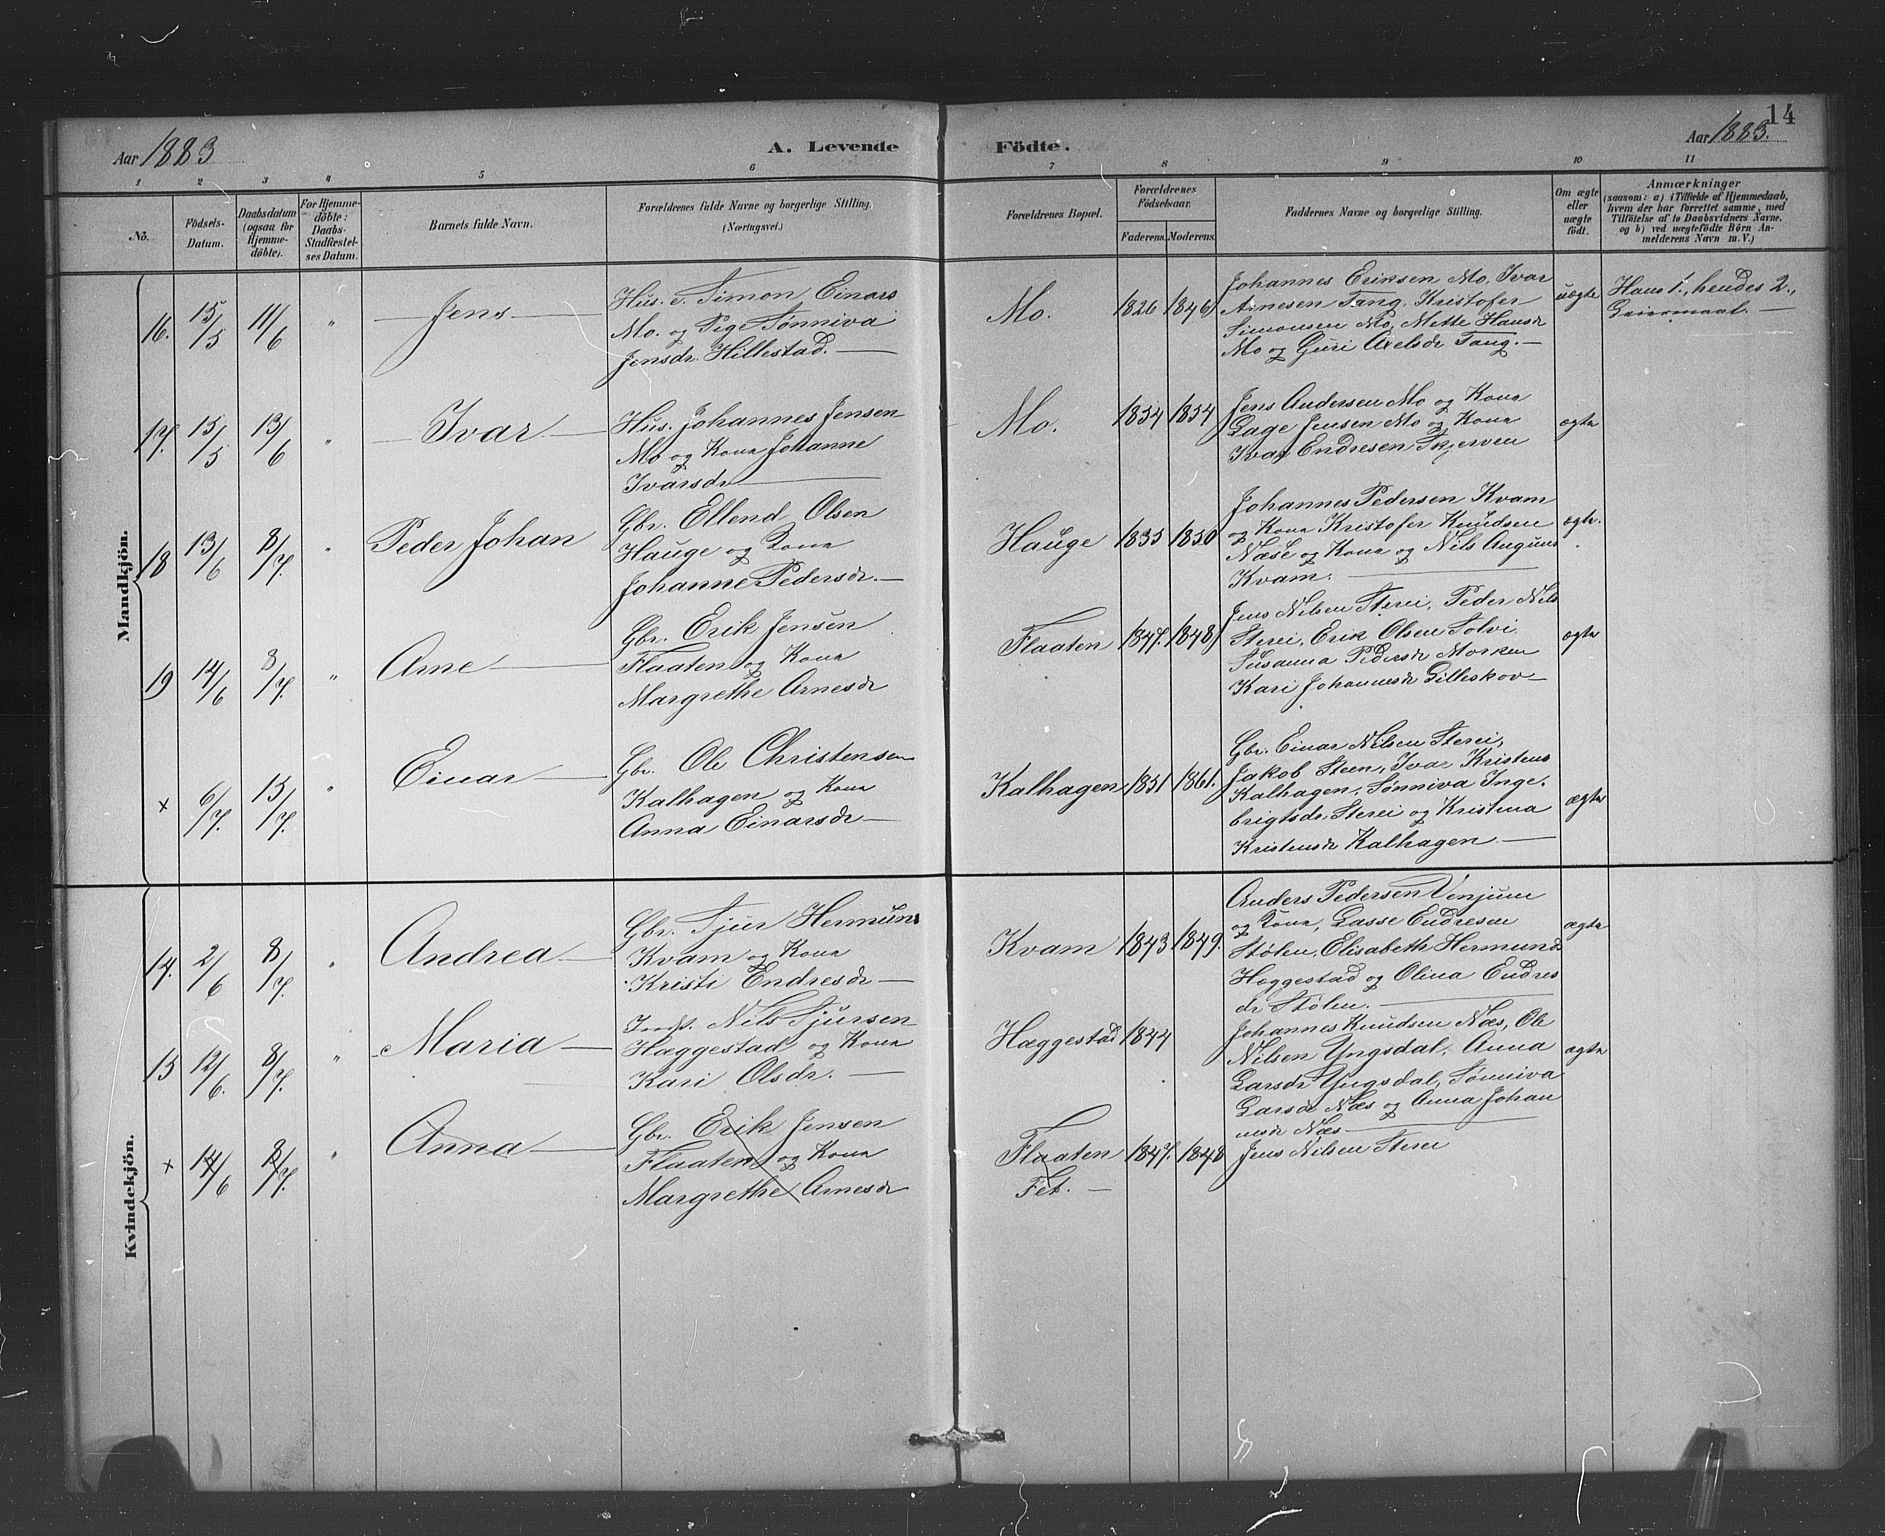 14
Aar 1883
A. Levende
Födte.
Aar 1883.
1 2 3 4 5 6 7 8 9 10 11
No.
Födsels-
Datum.
Daabsdatum
(ogsaa for
Hjemme-
döbte).
For Hjemme-
döbte:
Daabs-
Stadfæstel-
ses Datum.
Barnets fulde Navn.
Forældrenes fulde Navne og borgerlige Stilling.
(Næringsvei.)
Forældrenes Bopæl.
Forældrenes
Födselsaar.
Faderens. Moderens.
Faddernes Navne og borgerlige Stilling.
Om ægte
eller
uægte
födt.
Anmærkninger
(saasom: a) i Tilfælde af Hjemmedaab,
hvem der har forrettet samme, med
Tilföielse af to Daabsvidners Navne.
og b) ved uægtefödte Börn An-
melderens Navn m. V.)
Mandkjön.
16. 15/5 11/6 " Jens
Hus. e. Simon Einars
Mo. og Pige Sønniva
Jensdr. Hillestad.
Mo. 1826 1846
Johannes Eriksen Mo, Ivar
Arnesen Tang, Kristofer
Simonsen Mo, Mette Hansdr
Mo og Guri Axelsdr Tang.
uægte
Hans 1., hendes 2.,
Leiermaal.
17. 15/5 13/6 " Ivar
Hus. Johannes Jensen
Mo og Kona Johanne
Ivarsdr
Mo. 1854 1854
Jens Andersen Mo og Kona
Lage Jensen Mo og Kona
Ivar Endresen Skjerven
ægte
18 13/6 8/7. " Peder Johan
Gbr. Ellend Olsen
Hauge og Kona
Johanne Pedersdr.
Hauge 1835 1850
Johannes Pedersen Kvam
og Kona Kristofer Knudsen
Næse og Kona og Nils Anguns
Kvam.
ægte.
19 14/6 8/7. " Arne
Gbr. Erik Jensen
Flaaten og Kona
Margrethe Arnesdr
Flaaten 1847. 1848
Jens Nilsen Sterei, Peder Nils
Sterei, Erik Olsen Solvi
Susanna Pedersdr Morken
Kari Johannesdr Lilleskov
ægte
x 6/7. 15/7. " Einar
Gbr. Ole Christensen
Kalhagen og Kona
Anna Einarsdr
Kalhagen 1851 1861.
Gbr. Einar Nilsen Sterei,
Jakob Steen, Ivar Kristens
Kalhagen, Sønniva Inge-
brigtsdr. Sterei og Kristina
Kristensdr Kalhagen.
ægte
Kvindekjön.
14. 2/6 8/7. " Andrea
Gbr. Sjur Hermuns
Kvam og Kona
Kristi Endresdr
Kvam 1843 1849.
Anders Pedersen Venjum
og Kona, Lasse Endresen
Stølen, Elisabeth Hermunds
Heggestad og Olina Endres
dr Stølen.
ægte
15 12/6. 8/7. " Maria
Nils Sjursen
Hæggestad og Kona
Kari Olsdr.
Hæggestad 1844
Johannes Knudsen Næs, Ole
Nilsen Yngsdal, Anna
Larsdr Yngsdal, Sønniva
Larsdr Næs og Anna Johan
nesdr Næs
ægte
x 14/6 8/7. " Anna
Gbr. Erik Jensen
Flaaten og Kona
Margrethe Arnesdr
Flaaten 1847. 1848
Fet.
Jens Nilsen Sterei